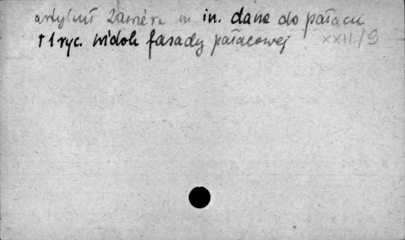 artykuł zawiera m. in. dane do pałacu
+ 1 ryc. widok fasady pałacowej XXII/9